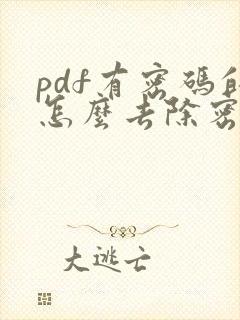 pdf有密碼
怎麼去除密
大逃亡